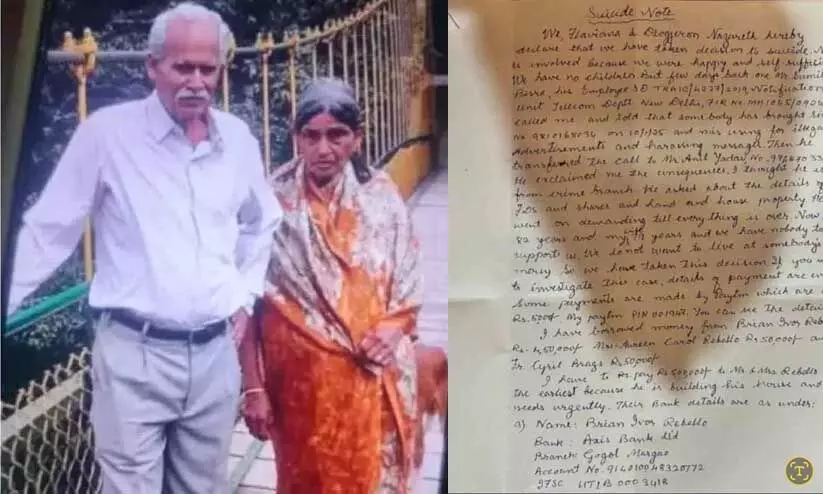 Suicide Note
We, Flaviana & Deogjeron Nazareth hereby
declare that we have taken decision to suicide. N
is involved because we were happy and self suffici
We have no children But few days back one Mr. Sumi
Birra, his Employee ID TRA10/4227/2019, Notification
Unit Telecom Deptt New Delhi, FIR No. MH1065/0
called me and told that somebody has brought Si
No on 10/1/25 and mis using for illega
Advertisements and harassing message. Then he
transferred the call to Mr. Anil Yadav, No.
He exclaimed me the consequences. I thought he is
from crime branch. He asked about the details of
FDs and shares and land and house property. He
went on demanding till every thing is over. Now
82 years and my wife 79 years and we have nobody to
support us. We do not want to live at somebody's
mercy. So we have taken this decision. If you w
to investigate this case, details of payment are
Some payments are made by Paytm which are
Rs. 5000/- My paytm PIN. You can see the detai
I have borrowed money from Brian Ivor Reb
Rs- 4,50,000/- Mrs- Aureen Carol Rebello Rs 50,000/- a
Fr. Cyril Braga Rs 50,000/-
I have to pay Rs 500,000/- to Mr & Mrs Rebello
the earliest because he is building his house and
needs urgently. Their Bank details are as under:
a) Name: Brian Ivor Rebello
Bank: Axis Bank Ltd
Branch: Gogol Margao
Account No. 914010048320772
IFSC UTIB 0003418